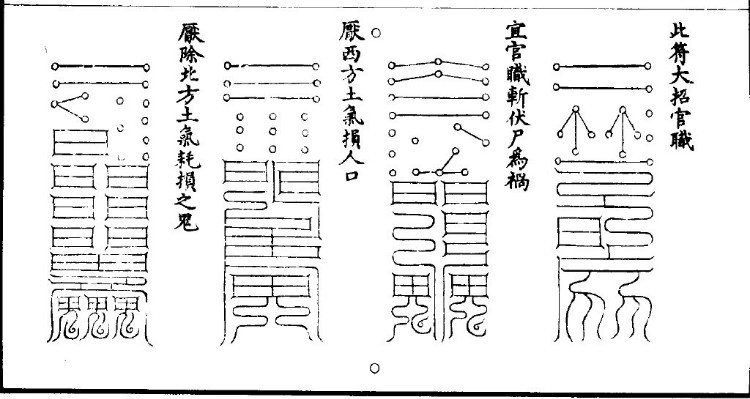 此符大招官職
宜官職斬伏尸為禍
厭西方土氣損人口
厭除北方土氣耗損之鬼